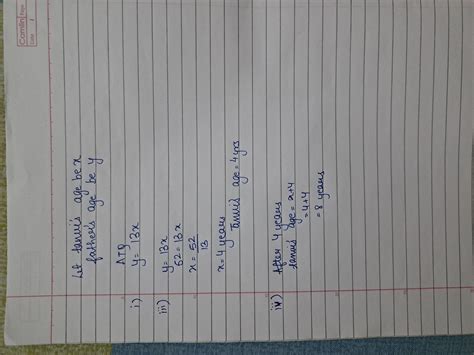 Camlin Page
Date
Let Tanvi's age be x
father's age be y
ATQ
i) y = 13x
iii) y = 13x
52 = 13x
x = 52
13
x = 4 years
Tanvi's age = 4 yrs
iv) After 4 years
Tanvi's age = x+4
= 4+4
= 8 years